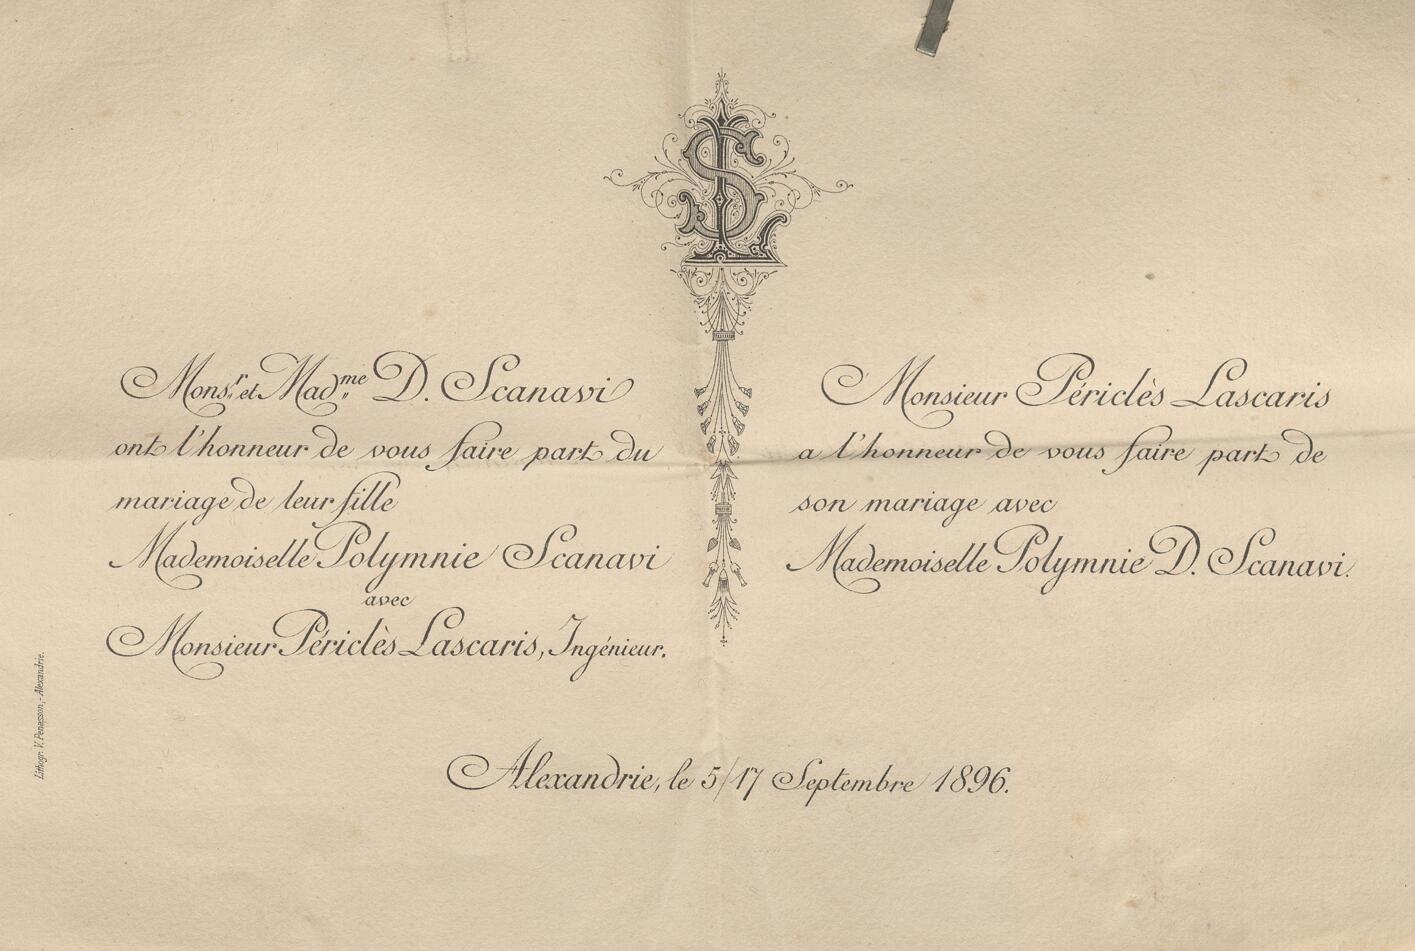 SL
Monsr. et Madme D. Scanavi
ont l'honneur de vous faire part du
mariage de leur fille
Mademoiselle Polymnie Scanavi
avec
Monsieur Périclès Lascaris, Ingénieur.
Monsieur Périclès Lascaris
a l'honneur de vous faire part de
son mariage avec
Mademoiselle Polymnie D. Scanavi.
Alexandrie, le 5/17 Septembre 1896.
Lithogr. V. Penasson, - Alexandrie.